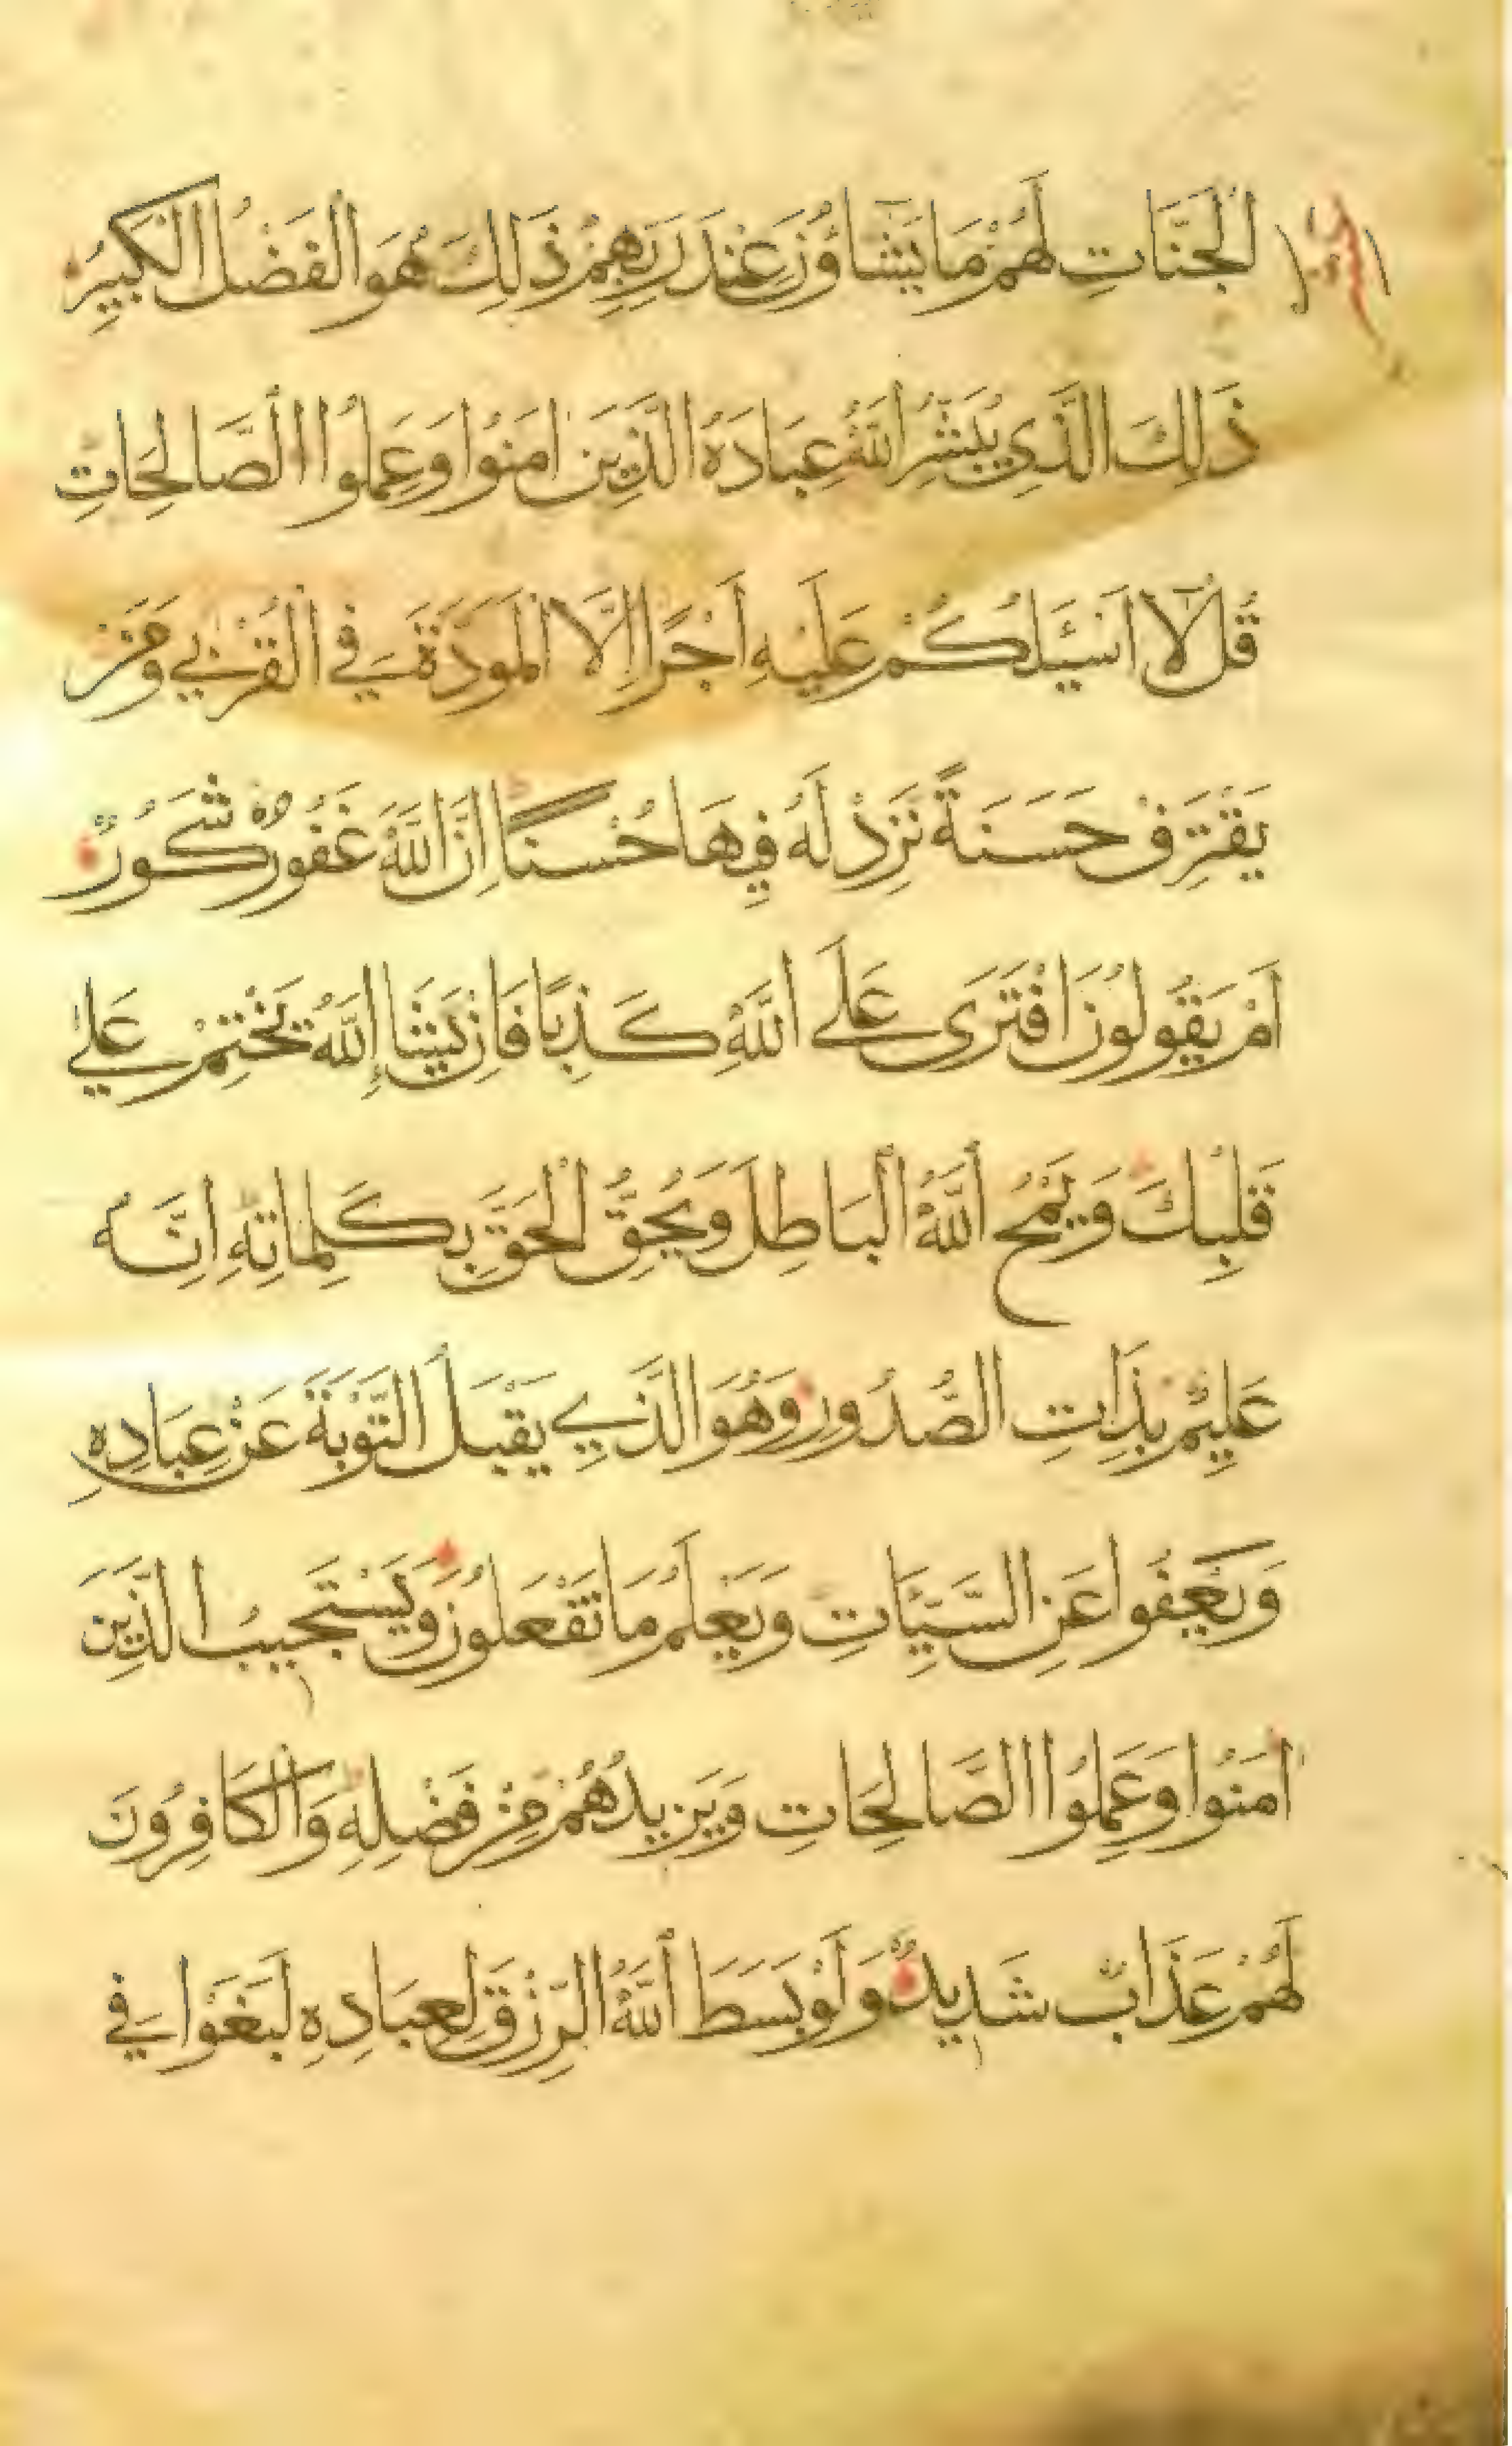 الْجَنَّاتِ لَهُمْ مَا يَشَاؤُنَ عِنْدَ رَبِّهِمْ ذَلِكَ هُوَ الْفَضْلُ الْكَبِيرُ
ذَلِكَ الَّذِي يُبَشِّرُ اللَّهُ عِبَادَهُ الَّذِينَ امَنُوا وَعَمِلُوا الصَّالِحَاتِ
قُلْ لَا اَسْئَلُكُمْ عَلَيْهِ اَجْرًا اِلَّا الْمَوَدَّةَ فِي الْقُرْبَي وَمَنْ
يَقْتَرِفْ حَسَنَةً نَزِدْ لَهُ فِيهَا حُسْنًا اِنَّ اللَّهَ غَفُورٌ شَكُورٌ
اَمْ يَقُولُونَ افْتَرَى عَلَى اللَّهِ كَذِبًا فَاِنْ يَشَإِ اللَّهُ يَخْتِمْ عَلَي
قَلْبِكَ وَيَمْحُ اللَّهُ الْبَاطِلَ وَيُحِقُّ الْحَقَّ بِكَلِمَاتِهِ اِنَّهُ
عَلِيمٌ بِذَاتِ الصُّدُورِ وَهُوَ الَّذِي يَقْبَلُ التَّوْبَةَ عَنْ عِبَادِهِ
وَيَعْفُوا عَنِ السَّيِّئَاتِ وَيَعْلَمُ مَا تَفْعَلُونَ وَيَسْتَجِيبُ الَّذِينَ
امَنُوا وَعَمِلُوا الصَّالِحَاتِ وَيَزِيدُهُمْ مِنْ فَضْلِهِ وَالْكَافِرُونَ
لَهُمْ عَذَابٌ شَدِيدٌ وَلَوْ بَسَطَ اللَّهُ الرِّزْقَ لِعِبَادِهِ لَبَغَوْا فِي